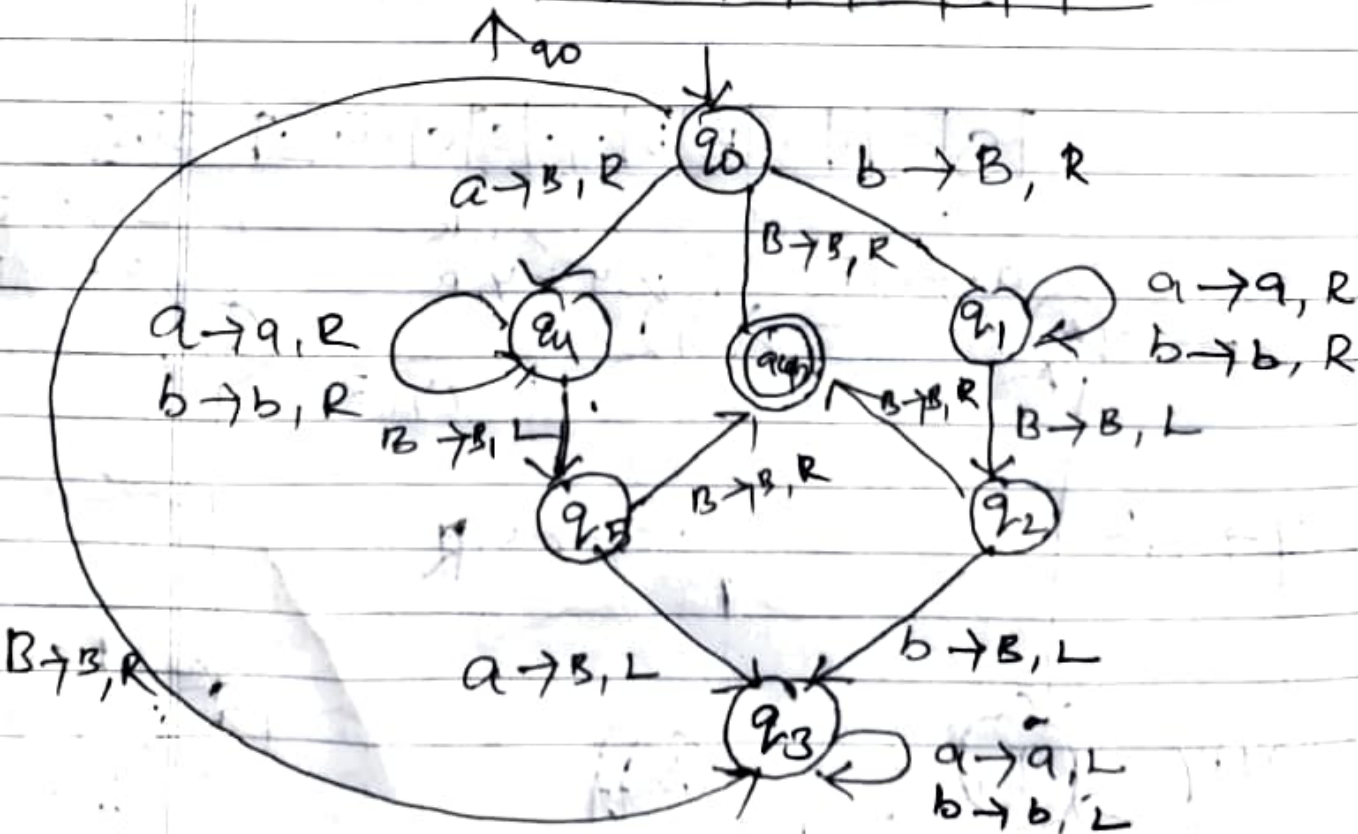 q0
q0
a→B, R
b→B, R
B→B, R
a→a, R
b→b, R
q4
q1
a→a, R
b→b, R
B→B, L
B→B, R
B→B, L
B→B, R
q5
q2
B→B, R
a→B, L
b→B, L
q3
a→a, L
b→b, L